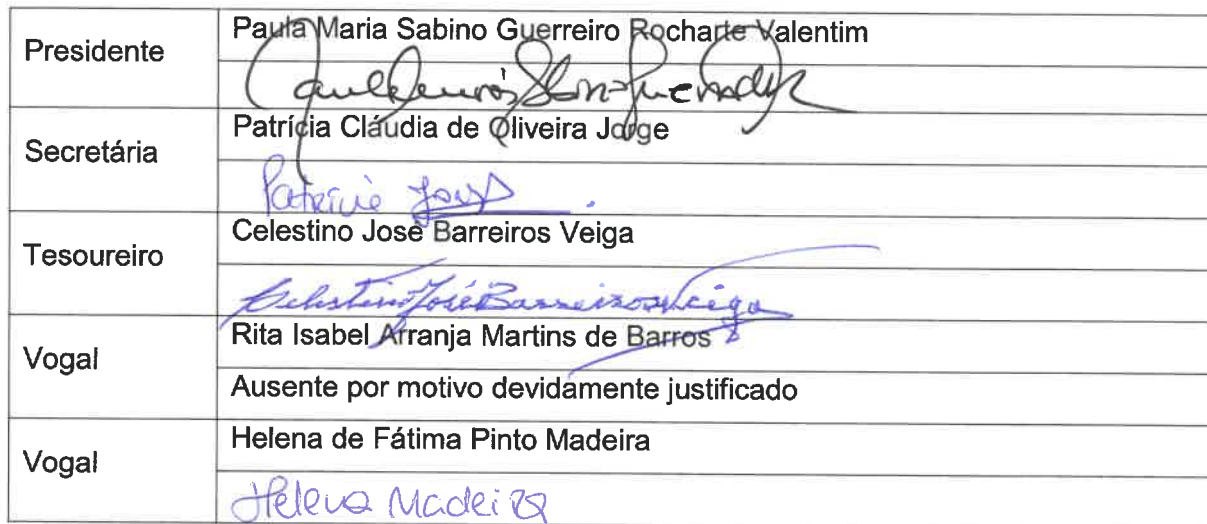 Presidente
Paula Maria Sabino Guerreiro Rocharte Valentim
Secretária
Patrícia Cláudia de Oliveira Jorge
Patrícia Jorge
Tesoureiro
Celestino José Barreiros Veiga
Celestino José Barreiros Veiga
Vogal
Rita Isabel Arranja Martins de Barros
Ausente por motivo devidamente justificado
Vogal
Helena de Fátima Pinto Madeira
Helena Madeira